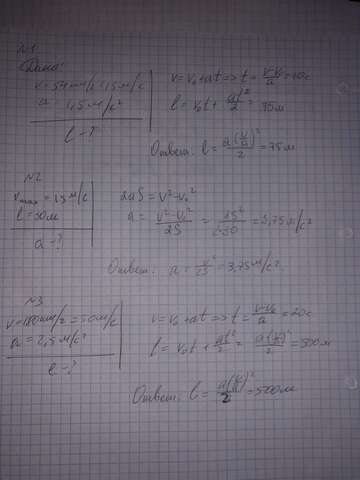 №1
Дано:
v = 54 км/ч = 15 м/с
a = 1,5 м/с²
l - ?
v = v₀ + at => t = (v-v₀)/a = 10с
l = v₀t + at²/2 = 75м
Ответ: l = a(v/a)²/2 = 75м
№2
vmax = 15 м/с
l = 30м
a - ?
2aS = v² - v₀²
a = (v²-v₀²)/2S = 15²/2·30 = 3,75 м/с²
Ответ: a = v²/2S = 3,75 м/с²
№3
v = 180 км/ч = 50 м/с
a = 2,5 м/с²
l - ?
v = v₀ + at => t = (v-v₀)/a = 20с
l = v₀t + at²/2 = a(v/a)²/2 = 500м
Ответ: l = a(v/a)²/2 = 500м